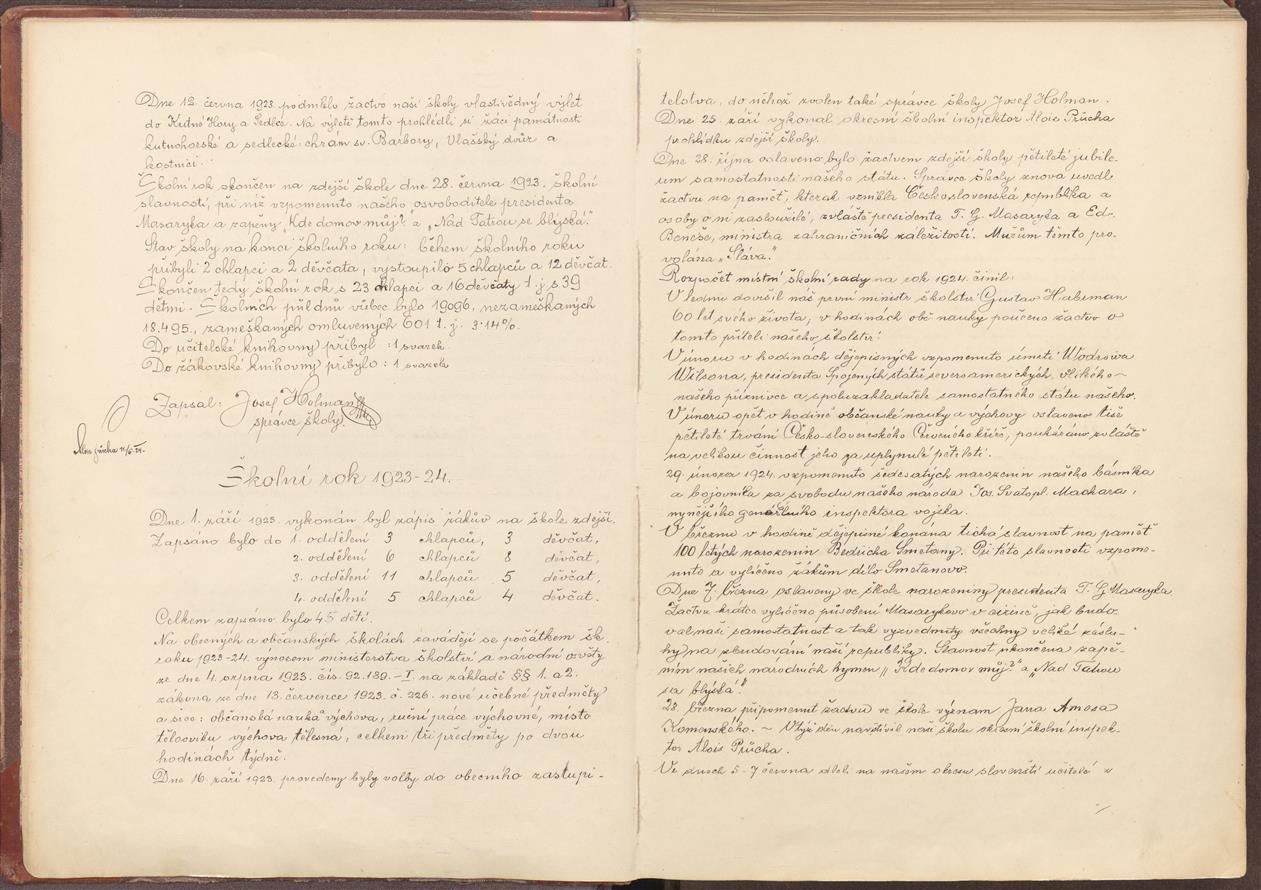 Dne 12. června 1923. podniklo žactvo naší školy vlastivědný výlet
do Kutné Hory a Sedlce. Na výletě tomto prohlédli si žáci památnosti
kutnohorské a sedlecké: chrám sv. Barbory, Vlašský dvůr a
kostnici.
Školní rok skončen na zdejší škole dne 28. června 1923. školní
slavností, při níž vzpomenuto našeho osvoboditele presidenta
Masaryka a zapěny „Kde domov můj?" a „Nad Tatrou se blýská."
Stav školy na konci školního roku: během školního roku
přibyli 2 chlapci a 2 děvčata, vystoupilo 5 chlapců a 12 děvčat.
Skončen tedy školní rok s 23 chlapci a 16 děvčaty t. j. s 39
dětmi. Školních půldnů vůbec bylo 19096, nezameškaných
18.495, zameškaných omluvených 601 t. j. 3·14%.
Do učitelské knihovny přibyl : 1 svazek.
Do žákovské knihovny přibylo : 1 svazek
Zapsal: Josef Holman
správce školy.
Alois Průcha
Školní rok 1923-24.
Dne 1. září 1923. vykonán byl zápis žákův na škole zdejší.
Zapsáno bylo do 1. oddělení 3 chlapců, 3 děvčat,
2. oddělení 6 chlapců 8 děvčat,
3. oddělení 11 chlapců 5 děvčat,
4. oddělení 5 chlapců 4 děvčat.
Celkem zapsáno bylo 45 dětí.
Na obecných a občanských školách zavádějí se počátkem šk.
roku 1923-24. výnosem ministerstva školství a národní osvěty
ze dne 4. srpna 1923. čís. 92.189.-I. na základě §§ 1. a 2.
zákona ze dne 13. července 1923. č. 226. nové učebné předměty
a sice: občanská nauka a výchova, ruční práce výchovné, místo
tělocviku výchova tělesná, celkem tři předměty po dvou
hodinách týdně.
Dne 16. září 1923. provedeny byly volby do obecního zastupi-
telstva, do něhož zvolen také správce školy Josef Holman.
Dne 25. září vykonal okresní školní inspektor Alois Průcha
prohlídku zdejší školy.
Dne 28. října oslaveno bylo žactvem zdejší školy pětileté jubile-
um samostatnosti našeho státu. Správce školy znova uvedl
žactvu na paměť, kterak vznikla Československá republika a
osoby o ni zasloužilé, zvláště presidenta T. G. Masaryka a Ed.
Beneše, ministra zahraničních záležitostí. Mužům těmto pro-
volána „Sláva."
Rozpočet místní školní rady na rok 1924. činil:
V lednu dovršil náš první ministr školství Gustav Habrman
60 let svého života, v hodinách obč. nauky poučeno žactvo o
tomto příteli našeho školství!
V únoru v hodinách dějepisných vzpomenuto úmrtí Wodrowa
Wilsona, presidenta Spojených států severoamerických, velikého
našeho příznivce a spoluzakladatele samostatného státu našeho.
V únoru opět v hodině občanské nauky a výchovy oslaveno tiše
pětileté trvání Česko-slovenského Červeného kříže, poukázáno zvláště
na velikou činnost jeho za uplynulé pětiletí.
29. února 1924. vzpomenuto šedesátých narozenin našeho básníka
a bojovníka za svobodu našeho národa Jos. Svatopl. Machara,
nynějšího generálního inspektora vojska.
V březnu v hodině dějepisné konána tichá slavnost na paměť
100 letých narozenin Bedřicha Smetany. Při této slavnosti vzpome-
nuto a vylíčeno žákům dílo Smetanovo.
Dne 7. března oslaveny ve škole narozeniny presidenta T. G. Masaryka.
Žactvu krátce vylíčeno působení Masarykovo v cizině, jak budo-
val naši samostatnost a tak vyzvednuty všechny veliké záslu-
hy na zbudování naší republiky. Slavnost ukončena zapě-
ním našich národních hymen „Kde domov můj?" a „Nad Tatrou
sa blýská."
28. března připomenut žactvu ve škole význam Jana Amosa
Komenského. - Týž den navštívil naši školu okresní školní inspek-
tor Alois Průcha.
Ve dnech 5.-7. června dleli na našem okresu slovenští učitelé v